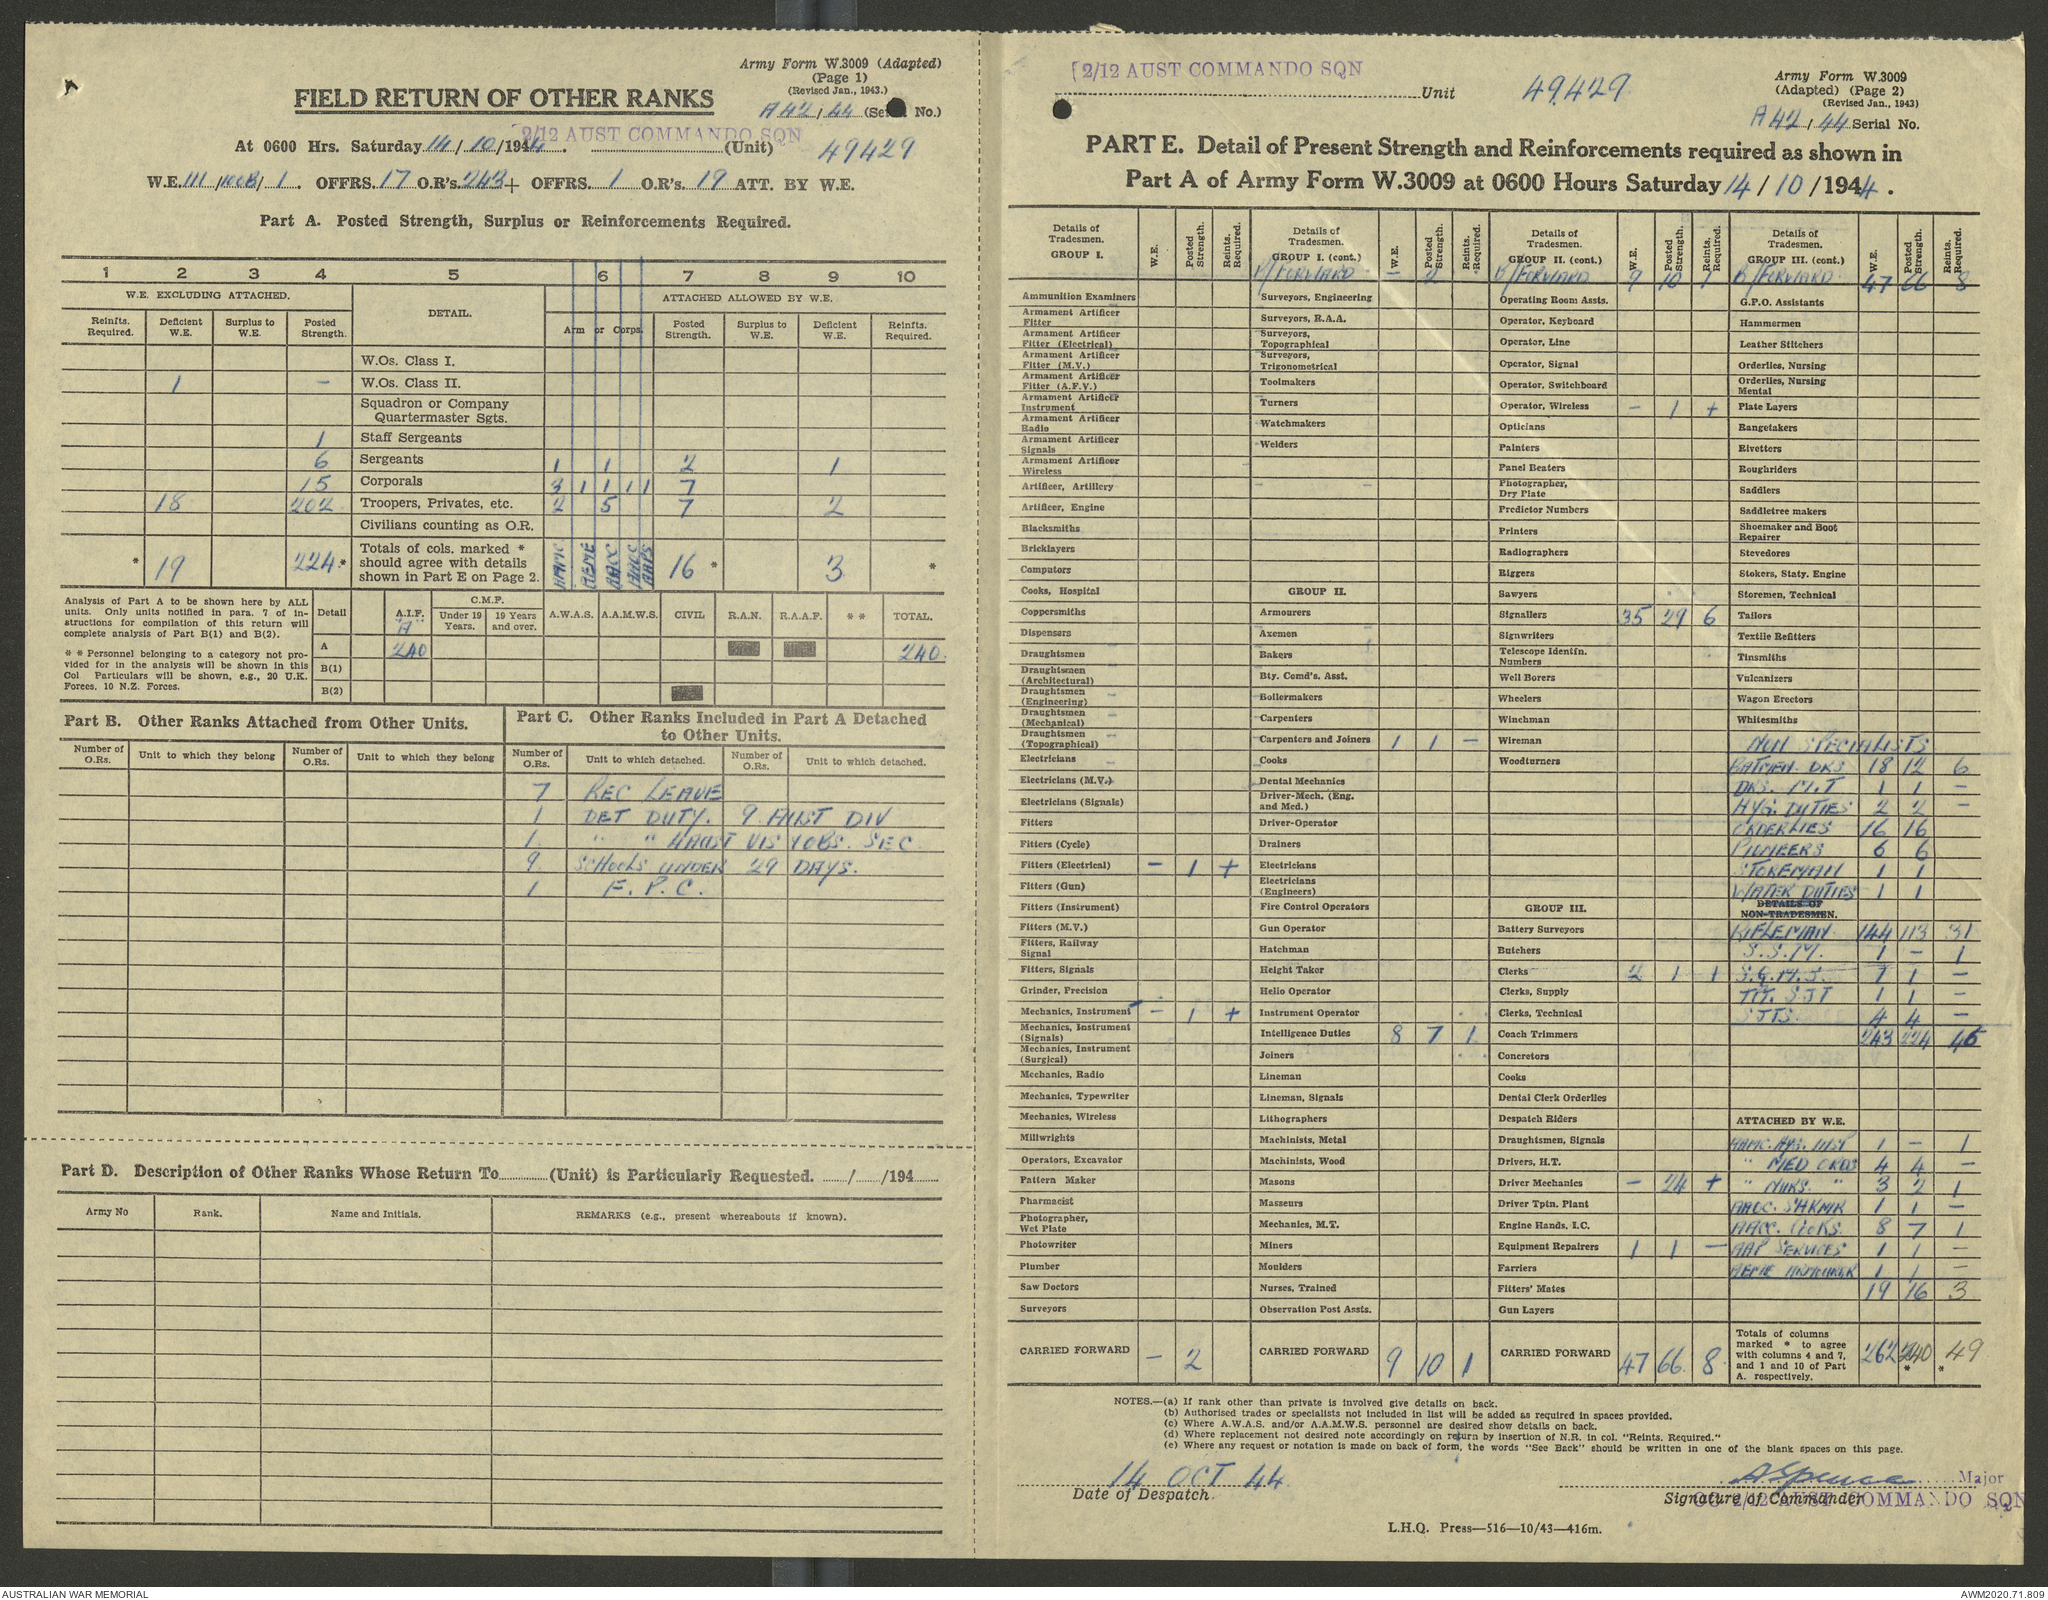 Army Form W.3009 (Adapted)
(Page 1)
(Revised Jan., 1943.)
FIELD RETURN OF OTHER RANKS
A42/44 (Serial No.)
At 0600 Hrs. Saturday 14/10/1944. 2/12 AUST COMMANDO SQN (Unit) 49429
W.E. III / / 1. OFFRS. 17 O.R's. 243 + OFFRS. 1 O.R's. 19 ATT. BY W.E.
Part A. Posted Strength, Surplus or Reinforcements Required.
1 2 3 4 5 6 7 8 9 10
W.E. EXCLUDING ATTACHED. DETAIL. ATTACHED ALLOWED BY W.E.
Reinfts. Required. Deficient W.E. Surplus to W.E. Posted Strength. Arm or Corps. Posted Strength. Surplus to W.E. Deficient W.E. Reinfts. Required.
W.Os. Class I.
1 - W.Os. Class II.
Squadron or Company Quartermaster Sgts.
1 Staff Sergeants
6 Sergeants 1 1 2 1
15 Corporals 3 1 1 1 1 7
18 202 Troopers, Privates, etc. 2 5 7 2
Civilians counting as O.R.
* 19 224* Totals of cols. marked * should agree with details shown in Part E on Page 2. AAMC AEME AACC AAOC AAPS 16 * 3 *
Analysis of Part A to be shown here by ALL units. Only units notified in para. 7 of instructions for compilation of this return will complete analysis of Part B(1) and B(2).
* * Personnel belonging to a category not provided for in the analysis will be shown in this Col Particulars will be shown, e.g., 20 U.K. Forces, 10 N.Z. Forces.
Detail A.I.F. "A" C.M.F. Under 19 Years. 19 Years and over. A.W.A.S. A.A.M.W.S. CIVIL R.A.N. R.A.A.F. * * TOTAL.
A 240 240.
B(1)
B(2)
Part B. Other Ranks Attached from Other Units.
Number of O.Rs. Unit to which they belong Number of O.Rs. Unit to which they belong
Part C. Other Ranks Included in Part A Detached to Other Units.
Number of O.Rs. Unit to which detached. Number of O.Rs. Unit to which detached.
7 REC LEAVE
1 DET DUTY. 9 AUST DIV
1. " " 4 AUST VIS OBS. SEC
9. SCHOOLS UNDER 29 DAYS.
1 E.P.C.
Part D. Description of Other Ranks Whose Return To (Unit) is Particularly Requested. / /194
Army No Rank. Name and Initials. REMARKS (e.g., present whereabouts if known).
2/12 AUST COMMANDO SQN Unit 49429
Army Form W.3009
(Adapted) (Page 2)
(Revised Jan., 1943)
A42/44 Serial No.
PART E. Detail of Present Strength and Reinforcements required as shown in
Part A of Army Form W.3009 at 0600 Hours Saturday 14/10/1944.
Details of Tradesmen. GROUP I. W.E. Posted Strength. Reints. Required.
Ammunition Examiners
Armament Artificer Fitter
Armament Artificer Fitter (Electrical)
Armament Artificer Fitter (M.V.)
Armament Artificer Fitter (A.F.V.)
Armament Artificer Instrument
Armament Artificer Radio
Armament Artificer Signals
Armament Artificer Wireless
Artificer, Artillery
Artificer, Engine
Blacksmiths
Bricklayers
Computors
Cooks, Hospital
Coppersmiths
Dispensers
Draughtsmen
Draughtsmen (Architectural)
Draughtsmen (Engineering)
Draughtsmen (Mechanical)
Draughtsmen (Topographical)
Electricians
Electricians (M.V.)
Electricians (Signals)
Fitters
Fitters (Cycle)
Fitters (Electrical) - 1 +
Fitters (Gun)
Fitters (Instrument)
Fitters (M.V.)
Fitters, Railway Signal
Fitters, Signals
Grinder, Precision
Mechanics, Instrument - 1 +
Mechanics, Instrument (Signals)
Mechanics, Instrument (Surgical)
Mechanics, Radio
Mechanics, Typewriter
Mechanics, Wireless
Millwrights
Operators, Excavator
Pattern Maker
Pharmacist
Photographer, Wet Plate
Photowriter
Plumber
Saw Doctors
Surveyors
CARRIED FORWARD - 2
Details of Tradesmen. GROUP I. (cont.) W.E. Posted Strength. Reints. Required.
B/FORWARD - 2
Surveyors, Engineering
Surveyors, R.A.A.
Surveyors, Topographical
Surveyors, Trigonometrical
Toolmakers
Turners
Watchmakers
Welders
GROUP II.
Armourers
Axemen
Bakers
Bty. Comd's. Asst.
Boilermakers
Carpenters
Carpenters and Joiners 1 1 -
Cooks
Dental Mechanics
Driver-Mech. (Eng. and Med.)
Driver-Operator
Drainers
Electricians
Electricians (Engineers)
Fire Control Operators
Gun Operator
Hatchman
Height Taker
Helio Operator
Instrument Operator
Intelligence Duties 8 7 1
Joiners
Lineman
Lineman, Signals
Lithographers
Machinists, Metal
Machinists, Wood
Masons
Masseurs
Mechanics, M.T.
Miners
Moulders
Nurses, Trained
Observation Post Assts.
CARRIED FORWARD 9 10 1
Details of Tradesmen. GROUP II. (cont.) W.E. Posted Strength. Reints. Required.
B/FORWARD 9 10 1
Operating Room Assts.
Operator, Keyboard
Operator, Line
Operator, Signal
Operator, Switchboard
Operator, Wireless - 1 +
Opticians
Painters
Panel Beaters
Photographer, Dry Plate
Predictor Numbers
Printers
Radiographers
Riggers
Sawyers
Signallers 35 29 6
Signwriters
Telescope Identfn. Numbers
Well Borers
Wheelers
Winchman
Wireman
Woodturners
GROUP III.
Battery Surveyors
Butchers
Clerks 2 1 1
Clerks, Supply
Clerks, Technical
Coach Trimmers
Concretors
Cooks
Dental Clerk Orderlies
Despatch Riders
Draughtsmen, Signals
Drivers, H.T.
Driver Mechanics - 24 +
Driver Tptn. Plant
Engine Hands, I.C.
Equipment Repairers 1 1 -
Farriers
Fitters' Mates
Gun Layers
CARRIED FORWARD 47 66. 8
Details of Tradesmen. GROUP III. (cont.) W.E. Posted Strength. Reints. Required.
B/FORWARD 47 66 8
G.P.O. Assistants
Hammermen
Leather Stitchers
Orderlies, Nursing
Orderlies, Nursing Mental
Plate Layers
Rangetakers
Rivetters
Roughriders
Saddlers
Saddletree makers
Shoemaker and Boot Repairer
Stevedores
Stokers, Staty. Engine
Storemen, Technical
Tailors
Textile Refitters
Tinsmiths
Vulcanizers
Wagon Erectors
Whitesmiths
NON SPECIALISTS
BATMEN. DRS 18 12 6
DRS. M.T 1 1 -
HYG. DUTIES 2 2 -
ORDERLIES 16 16
PIONEERS 6 6
STOREMAN 1 1
WATER DUTIES 1 1
DETAILS OF NON-TRADESMEN.
RIFLEMAN 144 113 31
S.S.M. 1 - 1
S.Q.M.S. 1 1 -
TPT. SJT 1 1 -
SJTS. 4 4 -
243 224 46
ATTACHED BY W.E.
AAMC. HYG. 1 - 1
" MED ORDS 4 4 -
" NURS. " 3 2 1
AAOC. S'HKMR 1 1 -
AACC. COOKS. 8 7 1
AAP SERVICES 1 1 -
AEME ARMOURER 1 1 -
19 16 3
Totals of columns marked * to agree with columns 4 and 7, and 1 and 10 of Part A. respectively. 262 240 * * 49
NOTES.—(a) If rank other than private is involved give details on back.
(b) Authorised trades or specialists not included in list will be added as required in spaces provided.
(c) Where A.W.A.S. and/or A.A.M.W.S. personnel are desired show details on back.
(d) Where replacement not desired note accordingly on return by insertion of N.R. in col. "Reints. Required."
(e) Where any request or notation is made on back of form, the words "See Back" should be written in one of the blank spaces on this page.
14 OCT 44.
Date of Despatch
A Spence Major
Signature of Commander
OC 2/12 AUST COMMANDO SQN
L.H.Q. Press—516—10/43—416m.
AUSTRALIAN WAR MEMORIAL
AWM2020.71.809